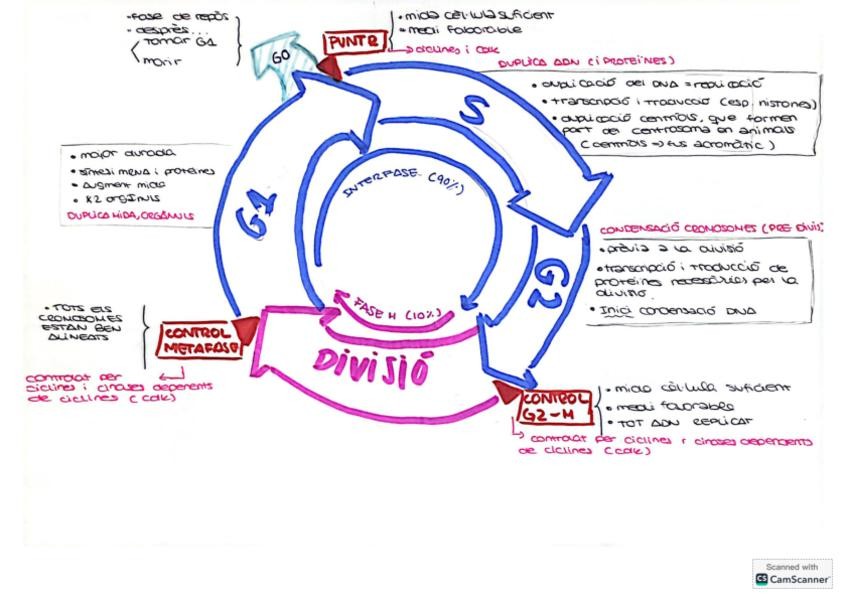 -Fase de repòs
- després...
tornar G1
morir
G0
PUNT R
• mida cèl·lula suficient
• medi faborable
→ ciclines i Cdk
DUPLICA ADN (i PROTEÏNES)
• duplicació del DNA = replicació
• transcripció i traducció (esp. histones)
• duplicació centríols, que formen
part de centrosoma en animals
(centríols → fus acromàtic)
S
• major durada
• síntesi mRNA i proteïnes
• Augment mida
• x2 orgànuls
DUPLICA MIDA, ORGÀNULS
G1
INTERFASE (90%)
CONDENSACIÓ CROMOSOMES (PRE DIVIS
• prèvia a la divisió
• transcripció i traducció de
proteïnes necessàries per la
divisió
• Inici condensació DNA
G2
FASE M (10%)
DIVISIÓ
• TOTS ELS
CROMOSOMES
ESTAN BEN
ALINEATS
CONTROL
METAFASE
controlat per
ciclines i cinases depenents
de ciclines (Cdk)
CONTROL
G2-M
• mida cèl·lula suficient
• medi favorable
• TOT ADN REPLICAT
→ controlat per ciclines i cinases dependents
de ciclines (Cdk)
Scanned with
CS CamScanner